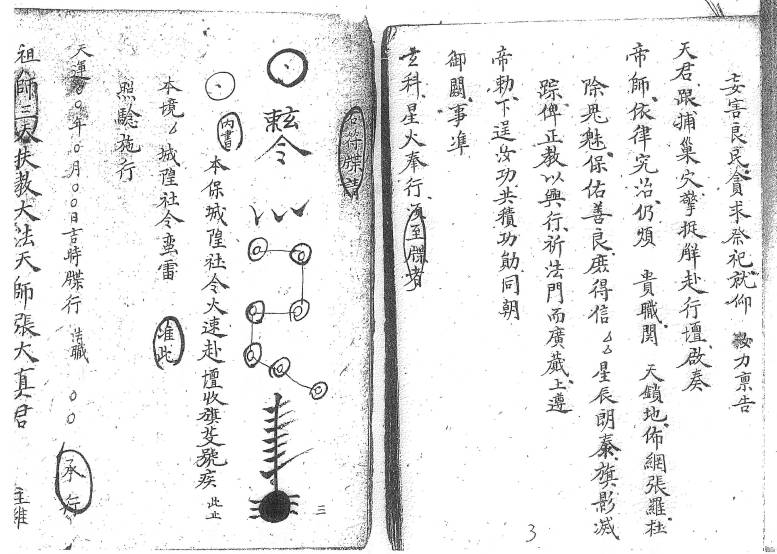 妄害良民貪求祭祀就仰 汝力稟告
天君跟捕巢穴擎捉解赴行壇啟奏
帝師依律究治仍煩 貴職関 天鎖地佈網張羅杜
除鬼魅保佑善良庶得信厶厶星辰朗泰旗影滅
踪俾正教以興行祈法門而廣蕆上遵
帝勅下逞汝功共積功勛同朝
御闕事準
玄科星火奉行須至牒者
右符牒請
令
三
內書 本保城隍社令火速赴壇收旗芟號疾 此止
本境厶城隍社令蛮雷 准此
照驗施行
天運00年0月00日吉時牒行 法職 00 承行
祖師三天扶教大法天師張大真君 主維
3